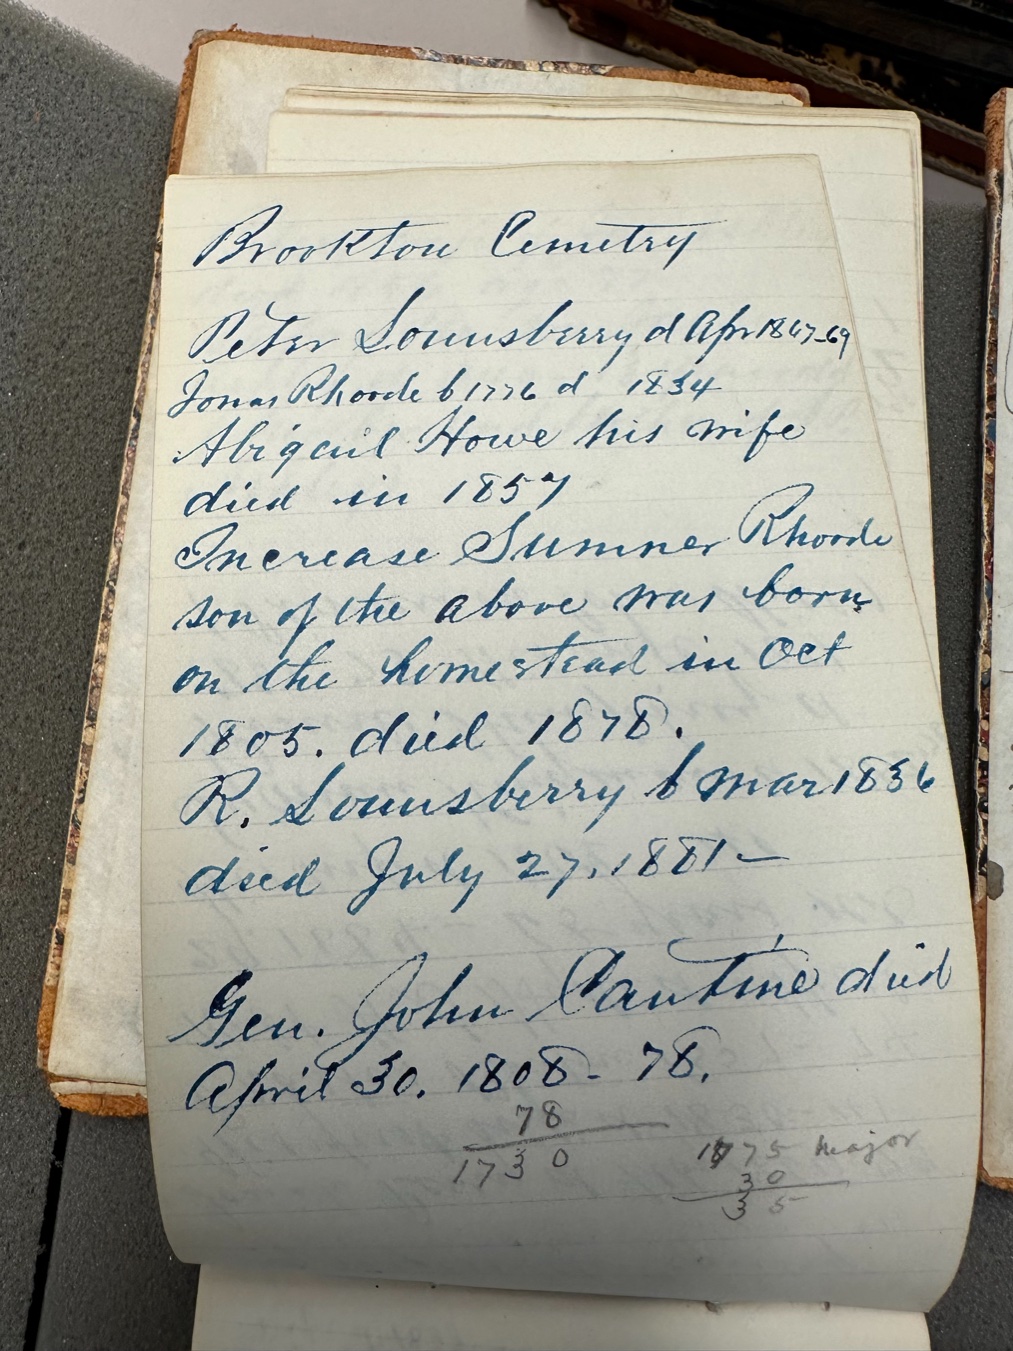 Brookton Cemetry
Peter Lounsberry d Apr 1867-69
Jonas Rhoode b 1776 d 1834
Abigail Howe his wife
died in 1857
Increase Sumner Rhoode
son of the above was born
on the homestead in Oct
1805. died 1878.
R. Lounsberry b Mar 1836
died July 27, 1881-
Gen. John Cantine died
April 30. 1808- 78.
78
1730
1775 Major
30
35